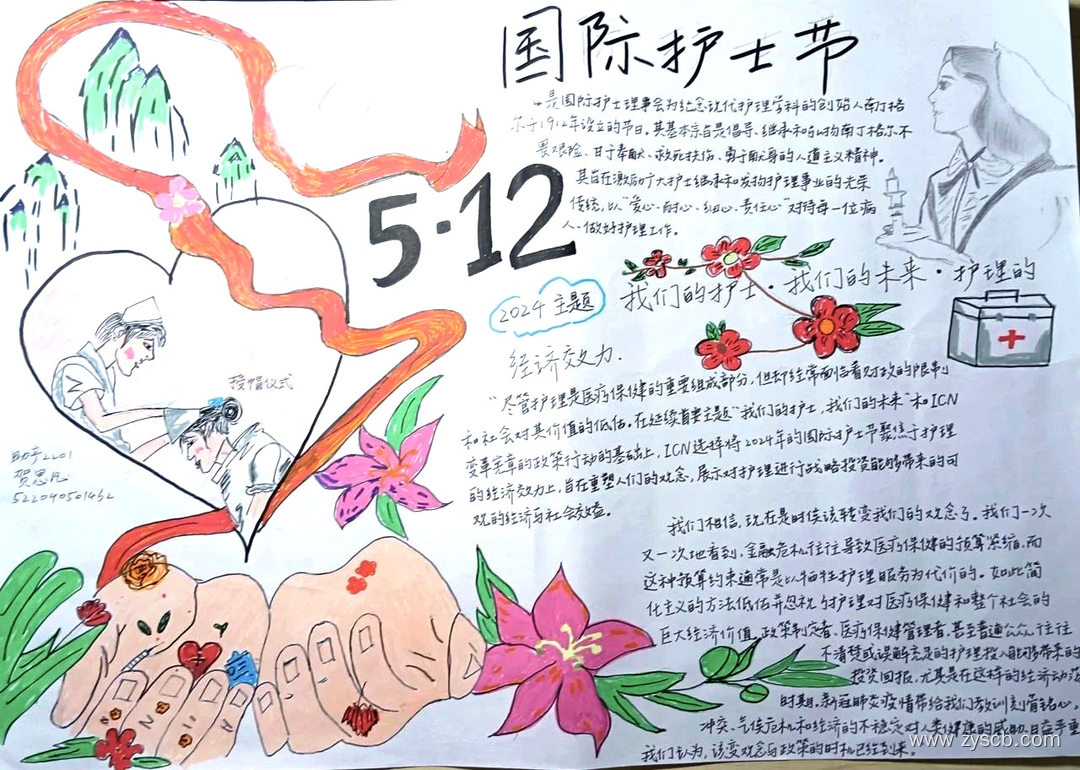 国际护士节
是国际护士理事会为纪念现代护理学科的创始人南丁格
尔于1912年设立的节日。其基本宗旨是倡导、继承和弘扬南丁格尔不
畏艰险、甘于奉献、救死扶伤、勇于献身的人道主义精神。
其旨在激励广大护士继承和发扬护理事业的光荣
传统,以“爱心、耐心、细心、责任心”对待每一位病
人、做好护理工作。
5·12
2024 主题
我们的护士·我们的未来·护理的
经济效力.
“尽管护理是医疗保健的重要组成部分,但却经常面临着财政的限制
和社会对其价值的低估。在延续首要主题“我们的护士,我们的未来”和ICN
变革宪章的政策行动的基础上,ICN选择将2024年的国际护士节聚焦于护理
的经济效力上,旨在重塑人们的观念,展示对护理进行战略投资能够带来的可
观的经济与社会效益。
授帽仪式
助产2201
贺思
522040501432
我们相信,现在是时候该转变我们的观念了。我们一次
又一次地看到,金融危机往往导致医疗保健的预算紧缩,而
这种预算约束通常是以牺牲护理服务为代价的。如此简
化主义的方法低估并忽视了护理对医疗保健和整个社会的
巨大经济价值。政策制定者、医疗保健管理者,甚至普通公众,往往
不清楚或误解充足的护理投入能够带来的
投资回报,尤其是在这样的经济动荡
时期。新冠肺炎疫情带给我们教训刻骨铭心,
冲突、气候危机和经济的不稳定对人类健康的威胁日益严重
我们认为,该变观念与政策的时机已经到来。
www.zyscb.com